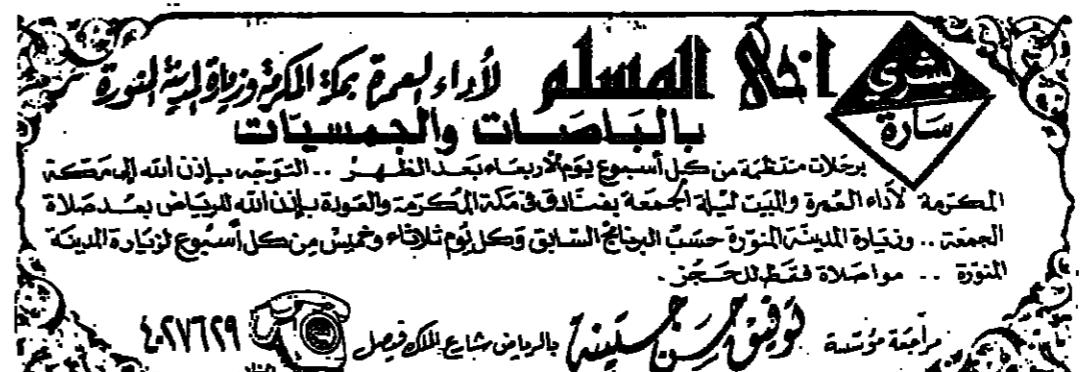 بشرى سارة
اخي المسلم لأداء العمرة بمكة المكرمة وزيارة المدينة المنورة
بالباصات والجمسيات
برحلات منتظمة من كل أسبوع يوم الأربعاء بعد الظهر .. التوجه بإذن الله إلى مكة
المكرمة لأداء العمرة والمبيت ليلة الجمعة بفنادق في مكة المكرمة والعودة بإذن الله للرياض بعد صلاة
الجمعة .. وزيارة المدينة المنورة حسب البرنامج السابق وكل يوم ثلاثاء وخميس من كل أسبوع لزيارة المدينة
المنورة .. مواصلاة فقط للحجز .
مراجعة مؤسسة توفيق حسن بالرياض شارع الملك فيصل ٤٠٢٧٦٢٩